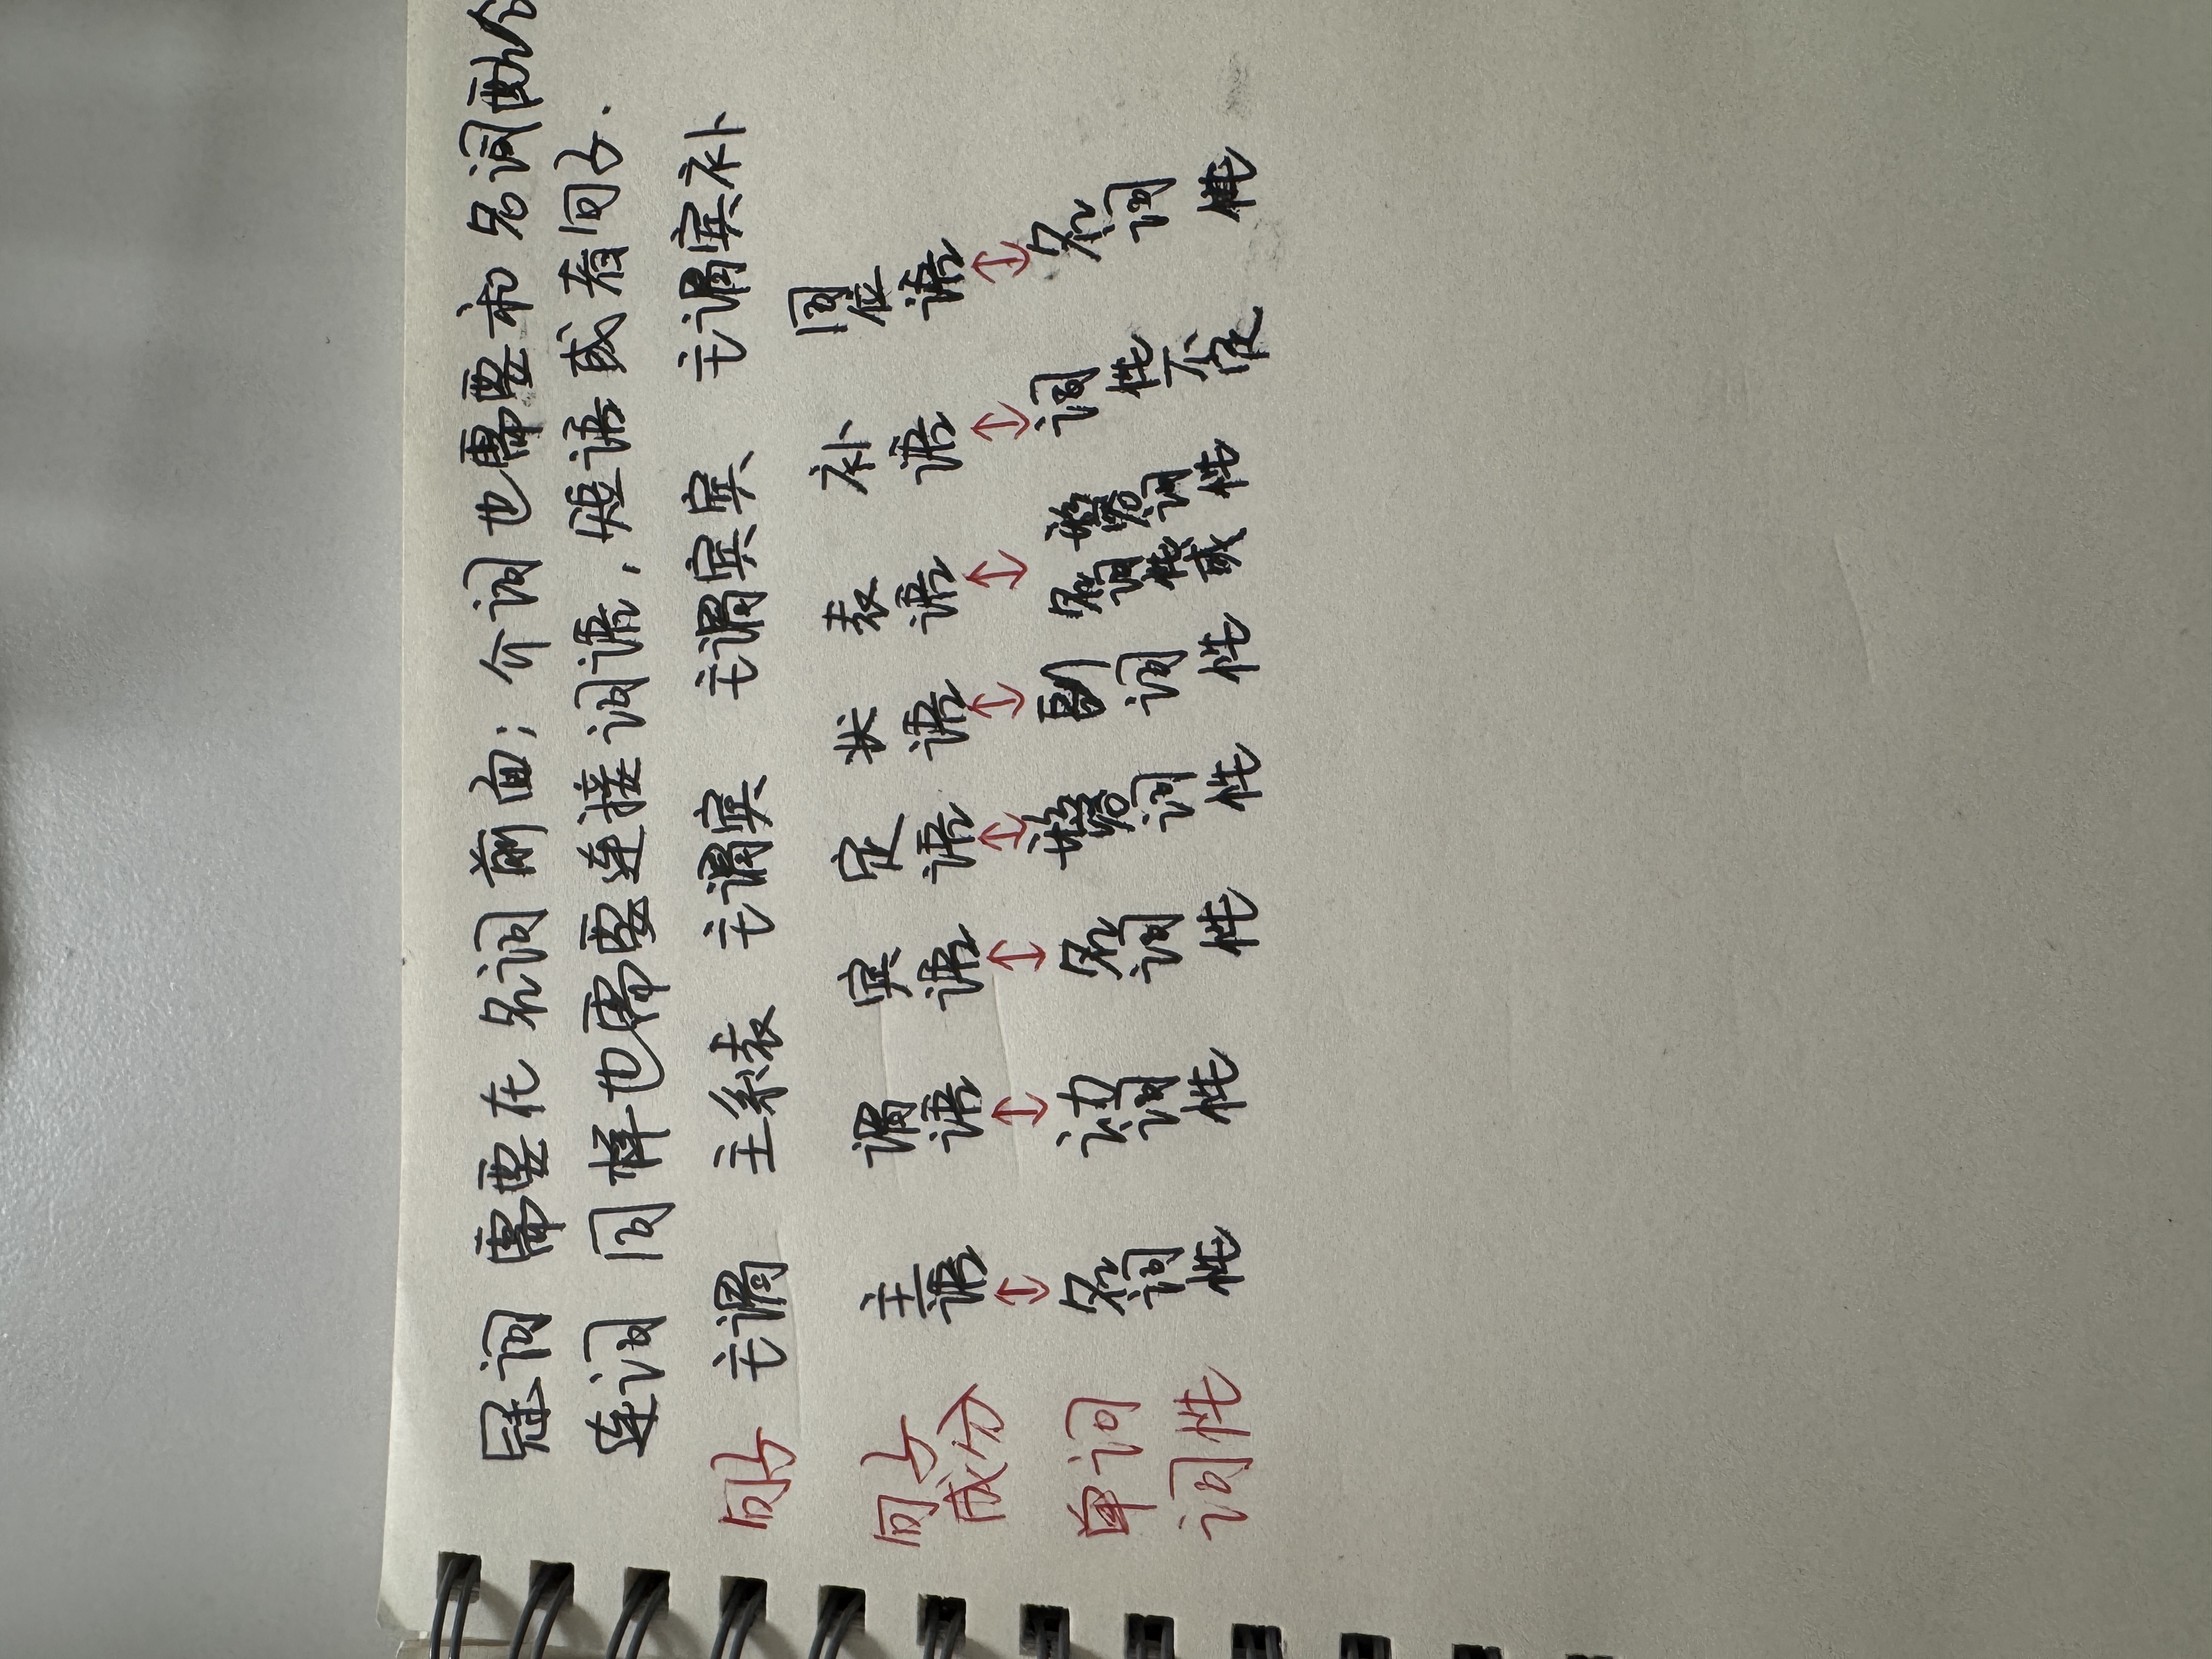 冠词 需要在 名词 前面；介词也需要和 名词配合
连词 同样也需要连接词语，短语或者句子．
句子 主谓 主系表 主谓宾 主谓宾宾 主谓宾补
句子成分 主语 谓语 宾语 定语 状语 表语 补语 同位语
↕ ↕ ↕ ↕ ↕ ↕ ↕ ↕
单词词性 名词性 动词性 名词性 形容词性 副词性 名词性或形容词性 词性不定 名词性